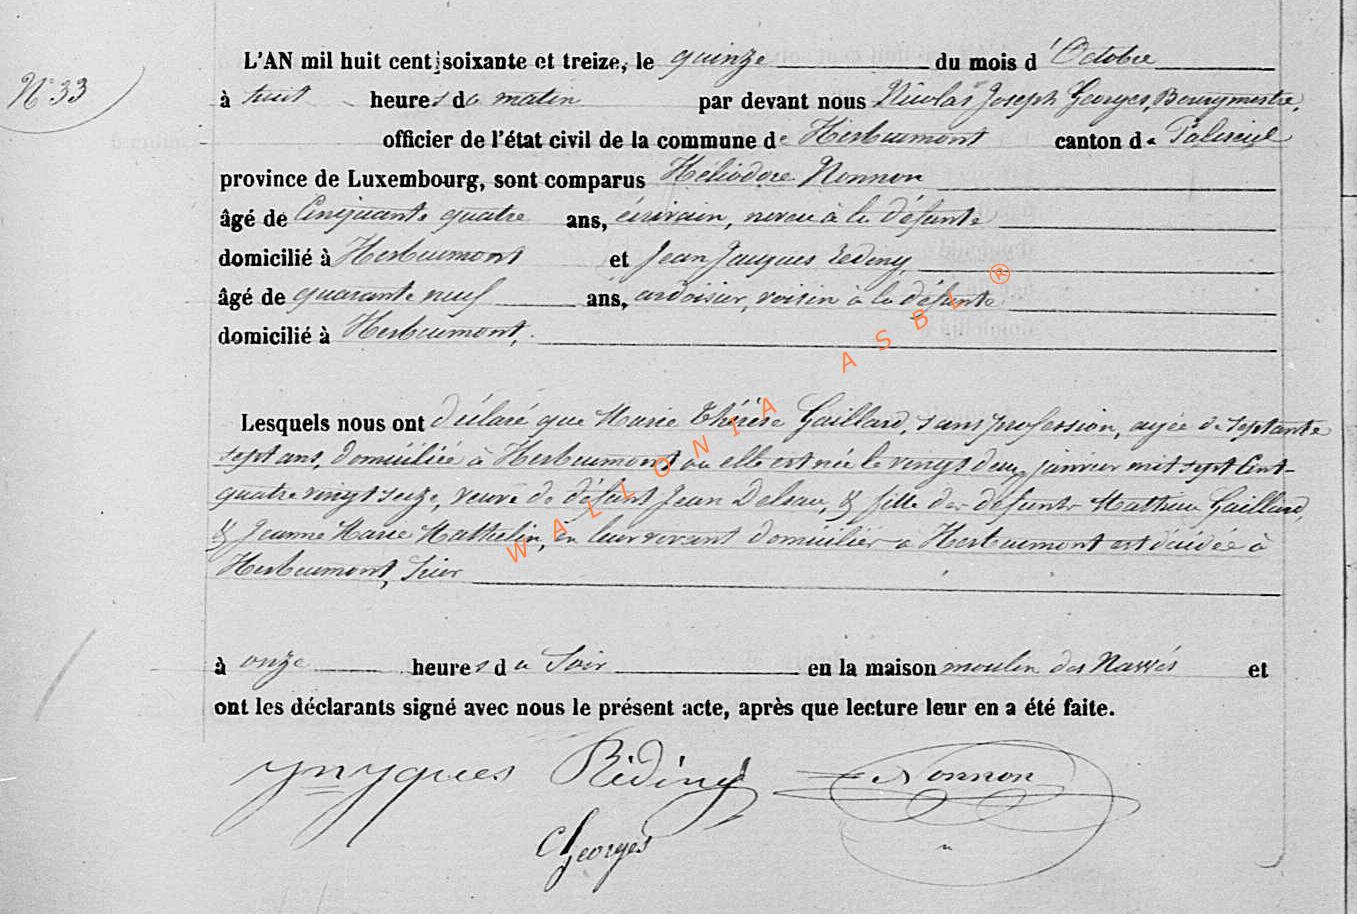 N° 33
L'AN mil huit cent soixante et treize, le quinze du mois d'Octobre
à huit heures du matin par devant nous Nicolas Joseph Georges, Bourgmestre,
officier de l'état civil de la commune de Herbeumont canton de Paliseul
province de Luxembourg, sont comparus Héliodore Nonnon
âgé de Cinquante quatre ans, écrivain, neveu à la défunte
domicilié à Herbeumont et Jean Jacques Rediny,
âgé de quarante neuf ans, ardoisier, voisin à la défunte
domicilié à Herbeumont,
Lesquels nous ont déclaré que Marie Thérèse Gaillard, sans profession, agée de septante
sept ans, domiciliée à Herbeumont ou elle est née le vingt deux janvier mil sept Cent
quatre vingt seize, veuve de défunt Jean Deleau, & fille des défunts Mathieu Gaillard,
& Jeanne Marie Mathelin, en leur vivant domiciliés à Herbeumont est décédée à
Herbeumont, hier
à onze heures du Soir en la maison moulin des Nawés et
ont les déclarants signé avec nous le présent acte, après que lecture leur en a été faite.
Rédiny Nonnon
Georges
WALLONIA ASBL ®